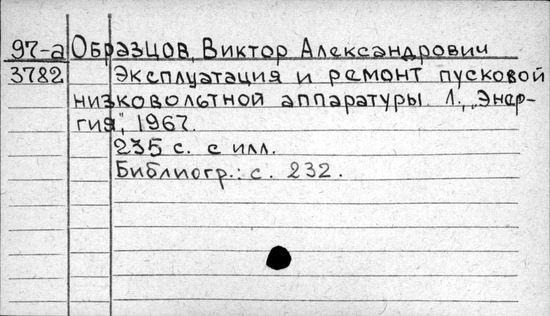 97-а Образцов, Виктор Александрович
3782 Эксплуатация и ремонт пусковой
низковольтной аппаратуры. Л., „Энер-
гия", 1967.
235 с. с илл.
Библиогр.: с. 232.